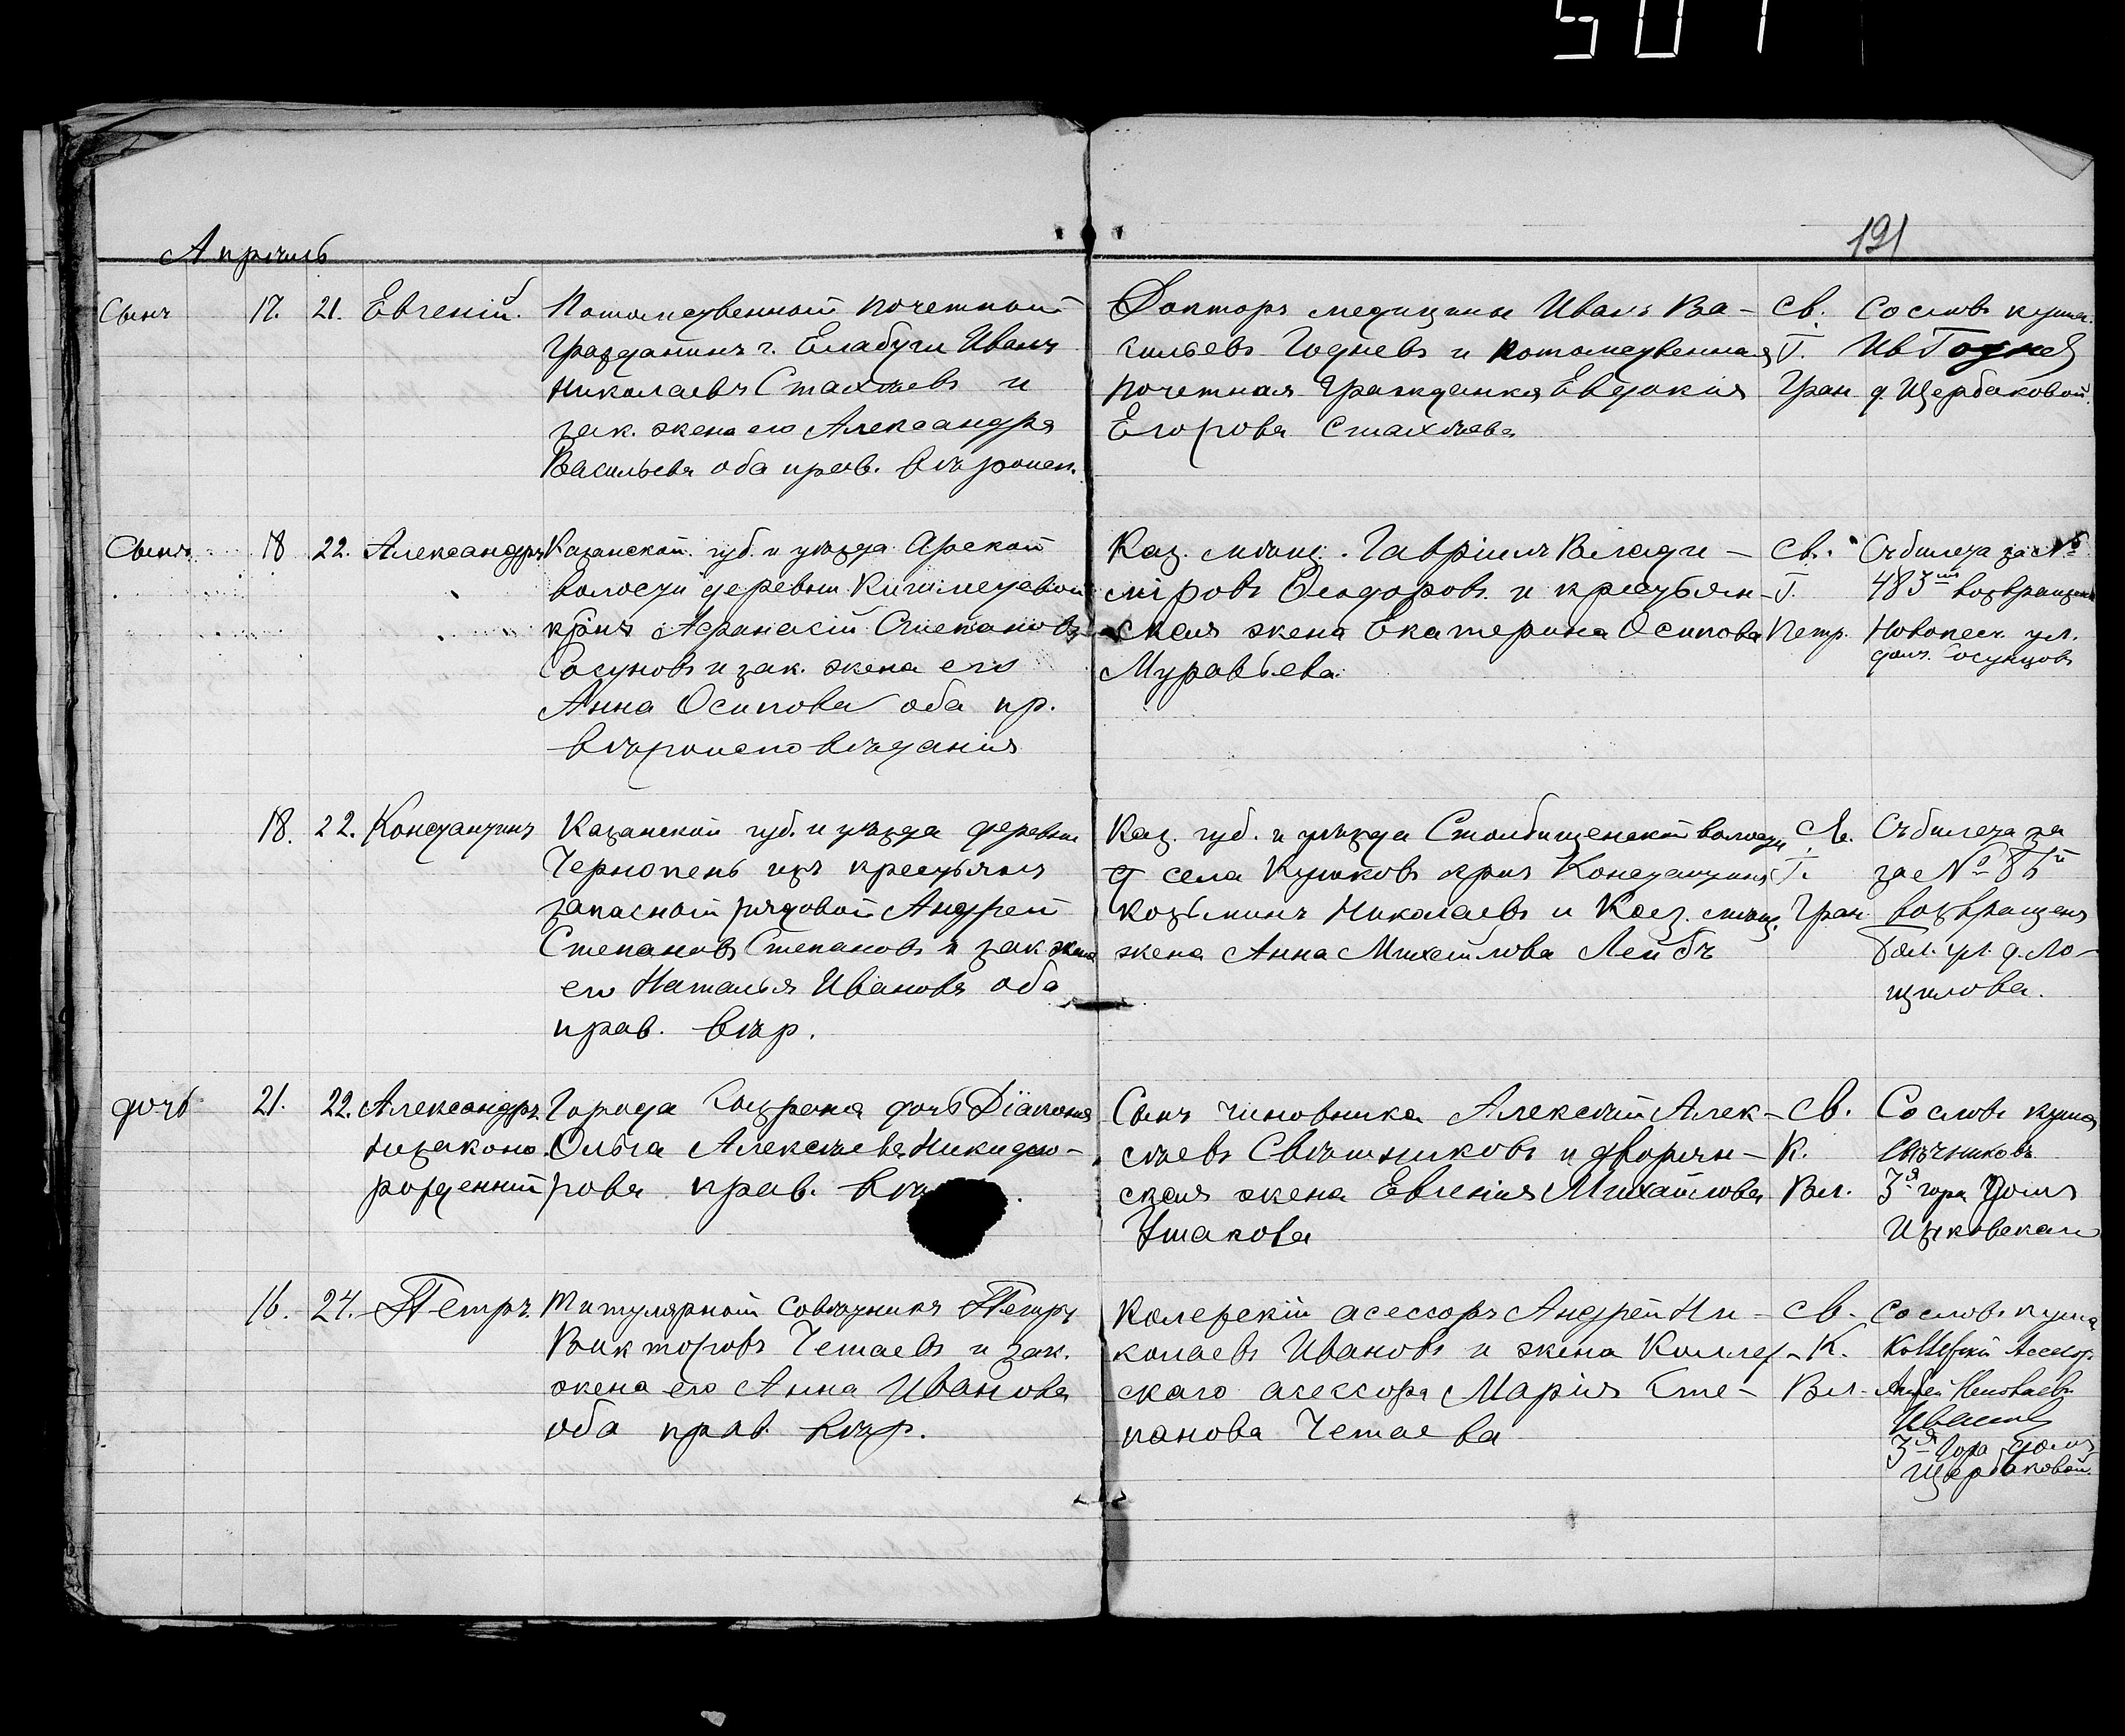 507
Апрѣль
121
Сынъ 17. 21. Евгеній. Потомственный почетный
гражданинъ г. Елабуги Иванъ
Николаевъ Стахѣевъ и
зак. жена его Александра
Васильева оба прав. вѣроисп.
Докторъ медицины Иванъ Ва-
сильевъ Годневъ и потомственная
почетная гражданка Евдокія
Егорова Стахѣева
Св.
Т.
Гран
Со словъ кума.
Ив Годнев
д. Щербаковой.
Сынъ 18 22. Александръ Казанской губ. и уѣзда Арской
волости деревни
крнъ Афанасій Степановъ
и зак. жена его
Анна Осипова оба пр.
вѣроисповѣданія
Каз. мѣщ. Гавріилъ Влади-
міровъ Ѳеодоровъ и крестьян-
ская жена Екатерина Осипова
Муравьева
Св.
Т.
Петр.
Съ билета за №
483мъ возвращенъ
Новопесч. ул.
домъ
18. 22. Константинъ Казанской губ. и уѣзда деревни
Чернопень изъ крестьянъ
запасный рядовой Андрей
Степановъ Степановъ и зак жена
его Наталья Иванова оба
прав. вѣр.
Каз. губ. и уѣзда Столбищенской волости
села крнъ Константинъ
Козьминъ Николаевъ и Каз. мѣщ.
жена Анна Михайлова Лейбъ
Св.
Т.
Гран
Съ билета за
за №
возвращенъ
ул. д. Ло-
щилова.
дочь 21. 22. Александр. Города Сызрана дочь Діакона
незаконо. Ольга Алексѣева Никифо-
рожденный рова прав. вѣ
Сынъ чиновника Алексѣй Алек-
сѣевъ Свѣшниковъ и дворян-
ская жена Евгенія Михайлова
Ушакова
Св.
К.
Вл.
Со словъ кума
3я гора домъ
16. 24. Петръ. Титулярный совѣтникъ Петръ
Викторовъ Четаевъ и зак.
жена его Анна Иванова
оба прав. вѣр.
Колежскій асессоръ Андрей Ни-
колаевъ Ивановъ и жена Коллеж-
скаго асессора Марія Сте-
панова Четаева
Св.
К.
Вл.
Со словъ кума
Коллежскій Асессор
Андрей Николаевъ
Ивановъ
3я Гора домъ
Щербаковой.